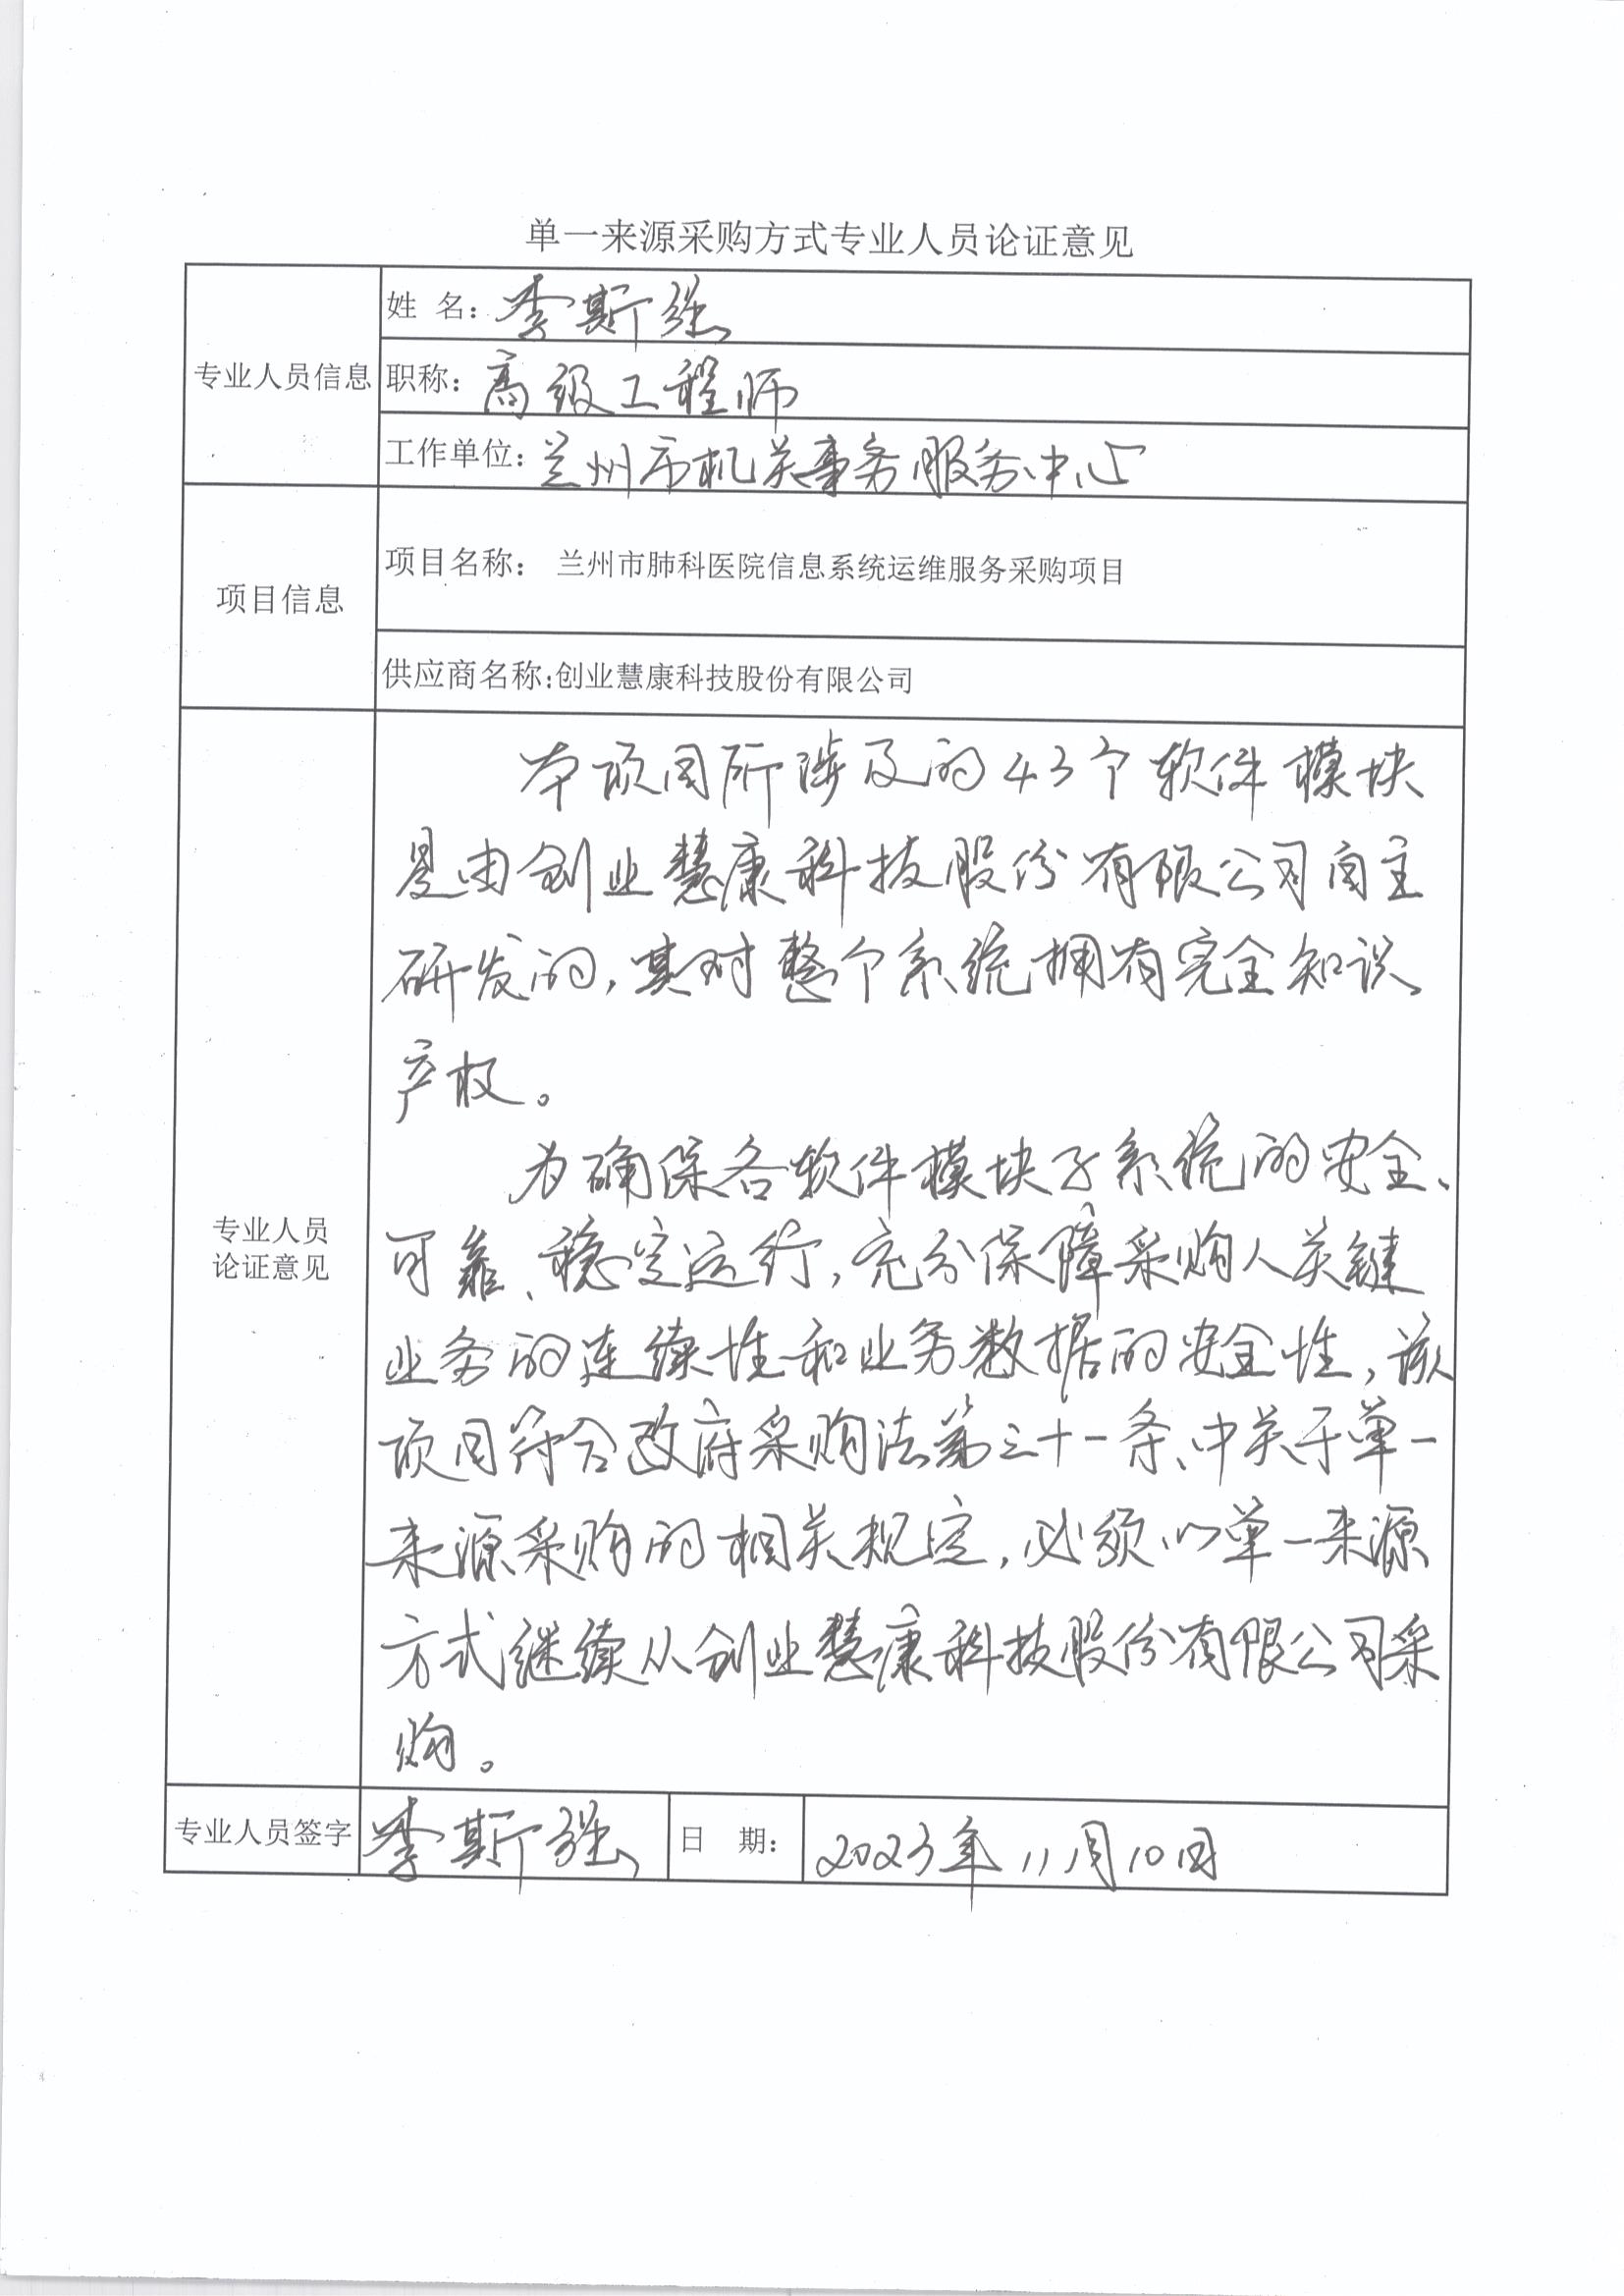 单一来源采购方式专业人员论证意见
专业人员信息
姓 名：李斯强
职称：高级工程师
工作单位：兰州市机关事务服务中心
项目信息
项目名称： 兰州市肺科医院信息系统运维服务采购项目
供应商名称:创业慧康科技股份有限公司
专业人员
论证意见
本项目所涉及的43个软件模块
是由创业慧康科技股份有限公司自主
研发的，其对整个系统拥有完全知识
产权。
为确保各软件模块子系统的安全、
可靠、稳定运行，充分保障采购人关键
业务的连续性和业务数据的安全性，该
项目符合政府采购法第三十一条、中关于单一
来源采购的相关规定，必须以单一来源
方式继续从创业慧康科技股份有限公司采
购。
专业人员签字 李斯强 日 期： 2023年11月10日